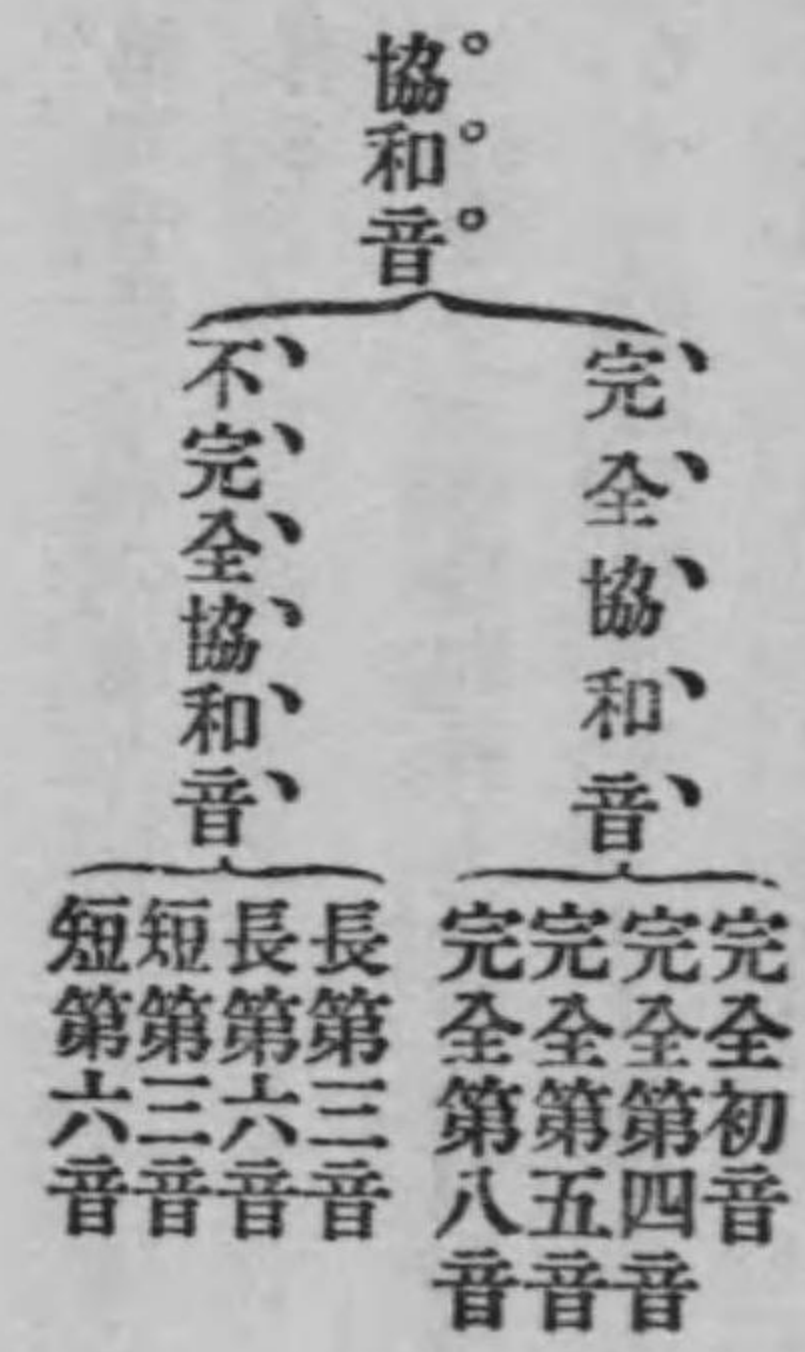 協和音
完全協和音
完全初音
完全第四音
完全第五音
完全第八音
不完全協和音
長第三音
長第六音
短第三音
短第六音